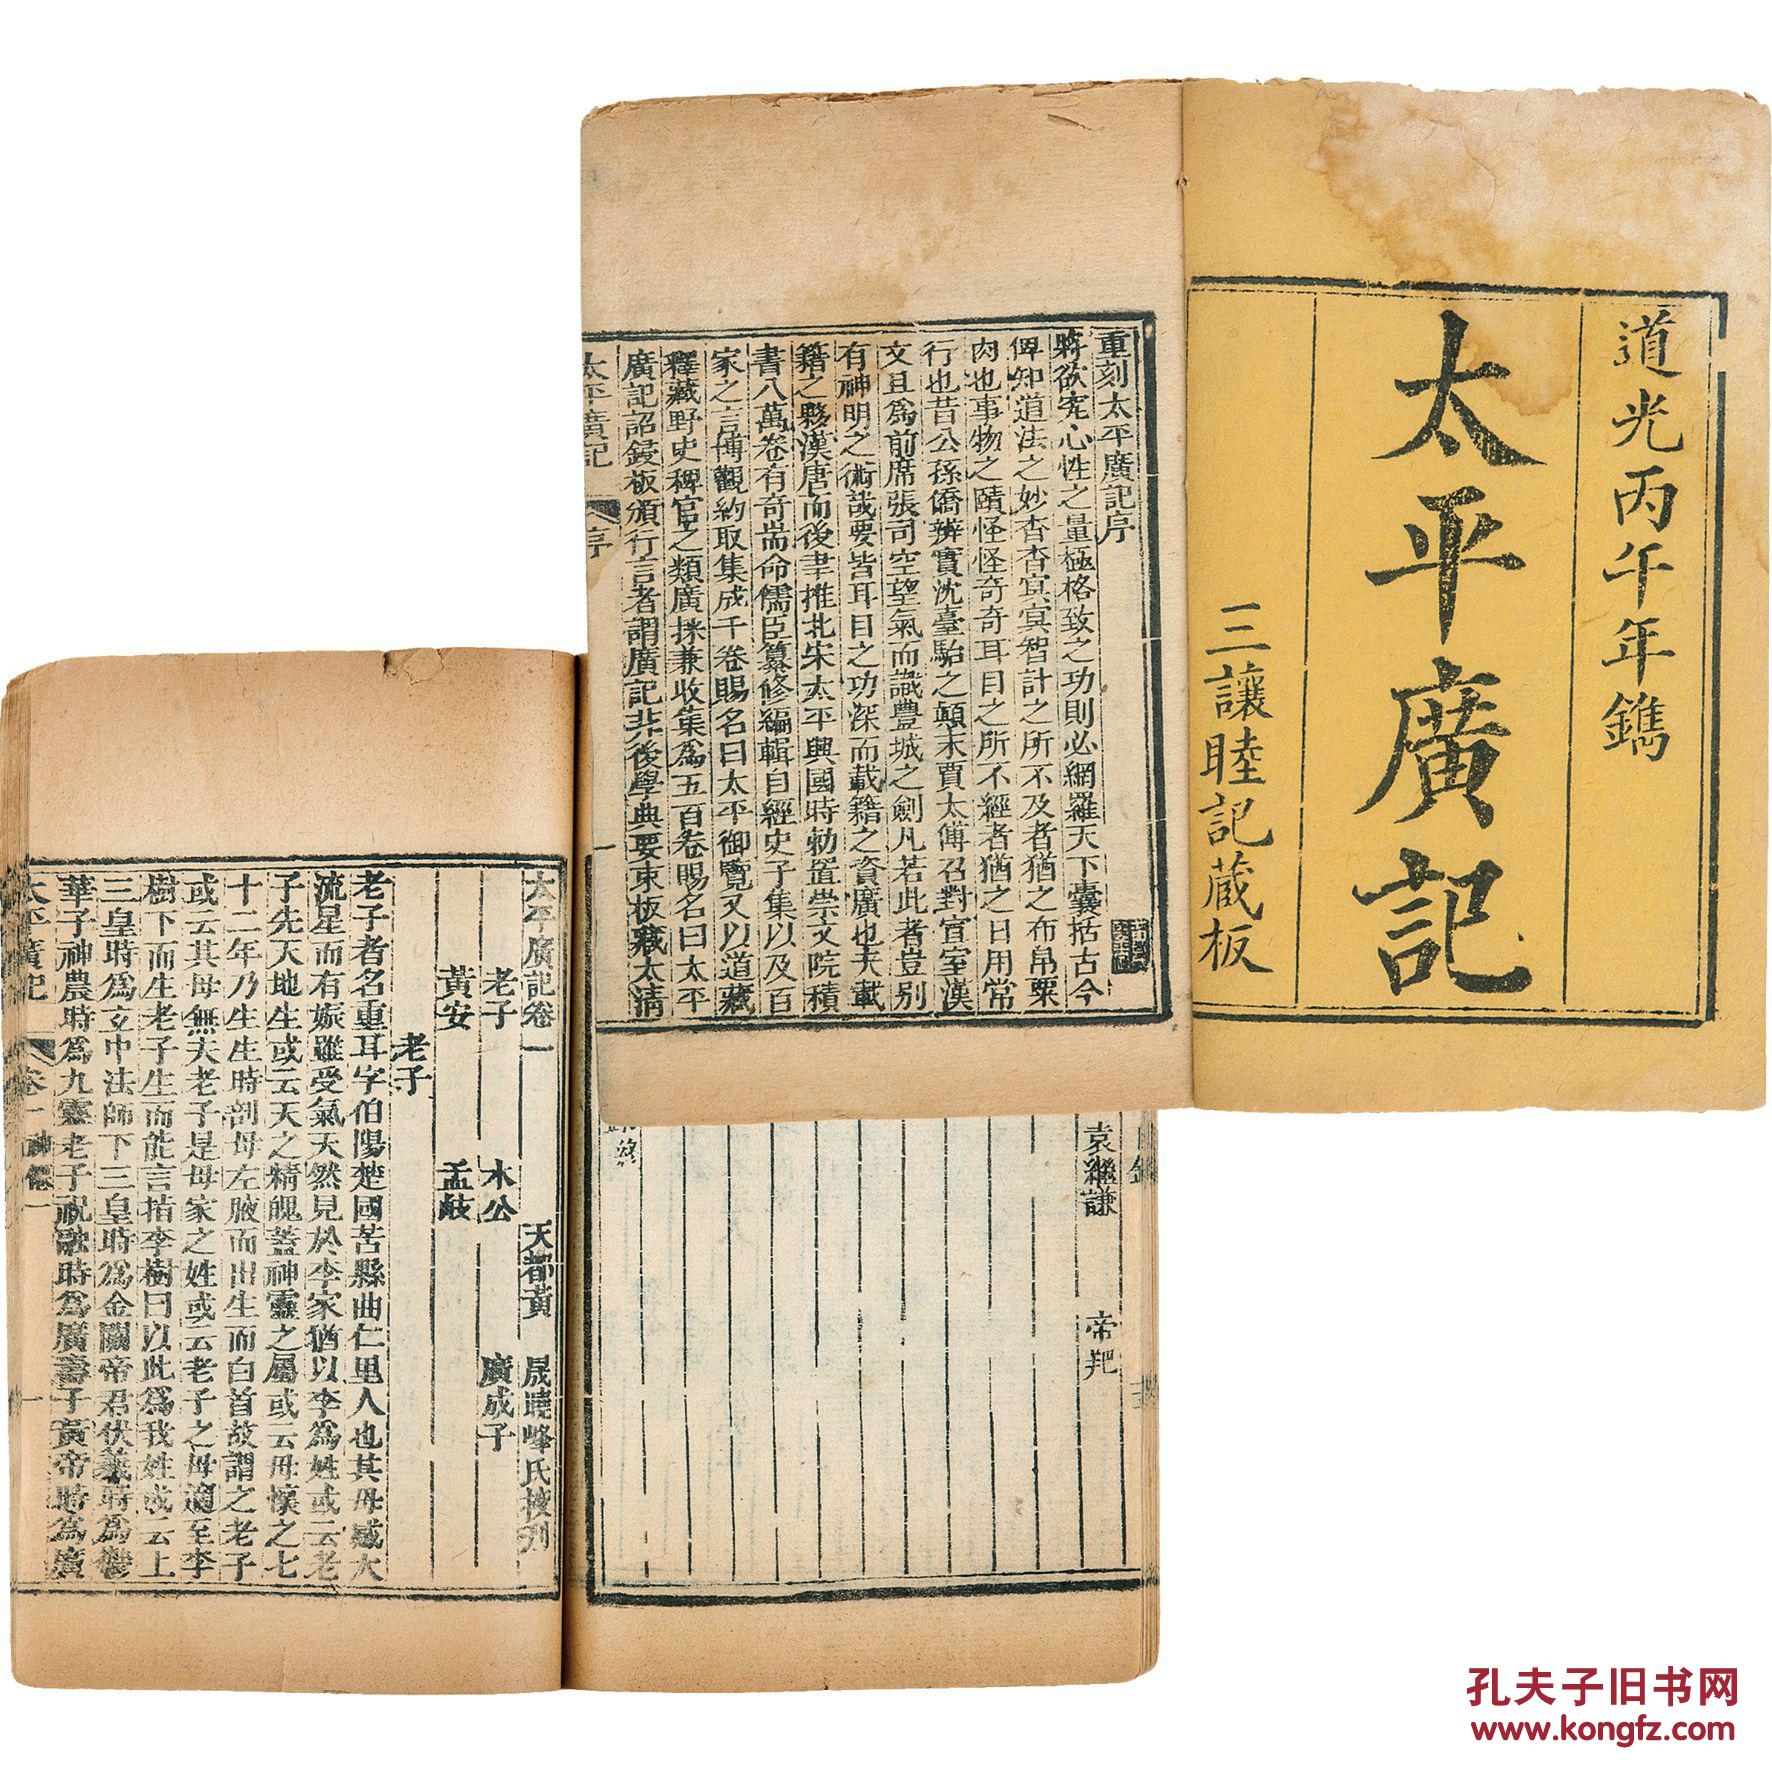 道光丙午年鐫
太平廣記
三讓睦記藏板
重刻太平廣記序
將欲究心性之量極格致之功則必網羅天下囊括古今
俾知道法之妙杳杳寞寞智計之所不及者猶之布帛粟
肉也事物之賾怪怪奇奇耳目之所不經者猶之日用常
行也昔公孫僑辨實沈臺駘之顛末賈太傅召對宣室漢
文且為前席張司空望氣而識豐城之劍凡若此者豈別
有神明之術哉要皆耳目之功深而載籍之資廣也夫載
籍之夥漢唐而後聿推北宋太平興國時勅置崇文院積
書八萬卷有奇耑命儒臣纂修編輯自經史子集以及百
家之言博觀約取集成千卷賜名曰太平御覽又以道藏
釋藏野史稗官之類廣採兼收集為五百卷賜名曰太平
廣記詔鋟板頒行言者謂廣記非後學典要束板藏太清
太平廣記 序 一
袁繼謙 帝羓
太平廣記卷一 天都黃 晟曉峰氏校刋
老子 木公 廣成子
黃安 孟岐
老子
老子者名重耳字伯陽楚國苦縣曲仁里人也其母感大
流星而有娠雖受氣天然見於李家猶以李為姓或云老
子先天地生或云天之精魄蓋神靈之屬或云母懷之七
十二年乃生生時剖母左腋而出生而白首故謂之老子
或云其母無夫老子是母家之姓或云老子之母適至李
樹下而生老子生而能言指李樹曰以此為我姓或云上
三皇時為玄中法師下三皇時為金闕帝君伏羲時為鬱
華子神農時為九靈老子祝融時為廣壽子黃帝時為廣
太平廣記 卷一 神僊一 一
孔夫子旧书网
www.kongfz.com